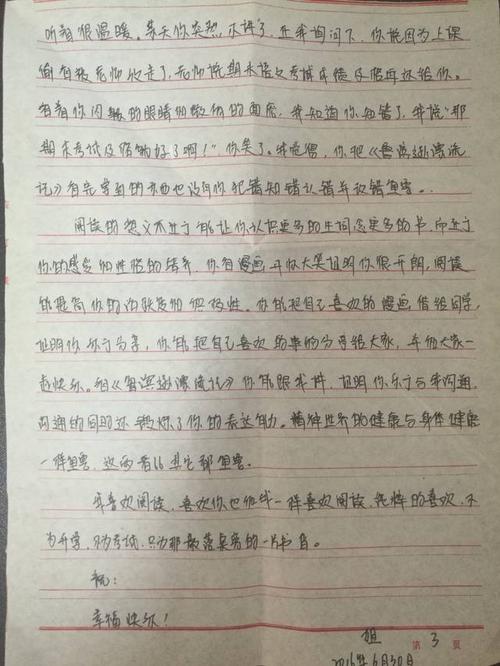 听着很温暖。某天你突然不讲了,在我询问下,你说因为上课
偷看被老师收走了,老师说期末语文考试成绩及格再还给你。
看着你闪躲的眼睛和微扬的面庞,我知道你知错了,我说"那
期末考试及格就好了啊!"你笑了。我觉得,你把《鲁滨逊漂流
记》看完拿到的东西也没有你犯错知错认错并改错重要。
阅读的意义不止于能让你认识更多的生词念更多的书,而在于
你的感受和性格的培养,你看漫画开怀大笑证明你很开朗,阅读
能提高你的沟通积极性。你能把自己喜欢的漫画借给同学,
证明你乐于分享,你能把自己喜欢的事分享给大家,和大家一
起快乐。和《鲁滨逊漂流记》你能跟我讲,证明你乐于与我沟通,
沟通的同时还锻炼了你的表达能力。精神世界的健康与身体健康
一样重要,这两者比其它都重要。
我喜欢阅读,喜欢你也像我一样喜欢阅读,纯粹的喜欢,不
为升学,不为考试,只为那散落桌旁的一片书香。
祝:
幸福快乐!
姐 第3页
2016年6月30日